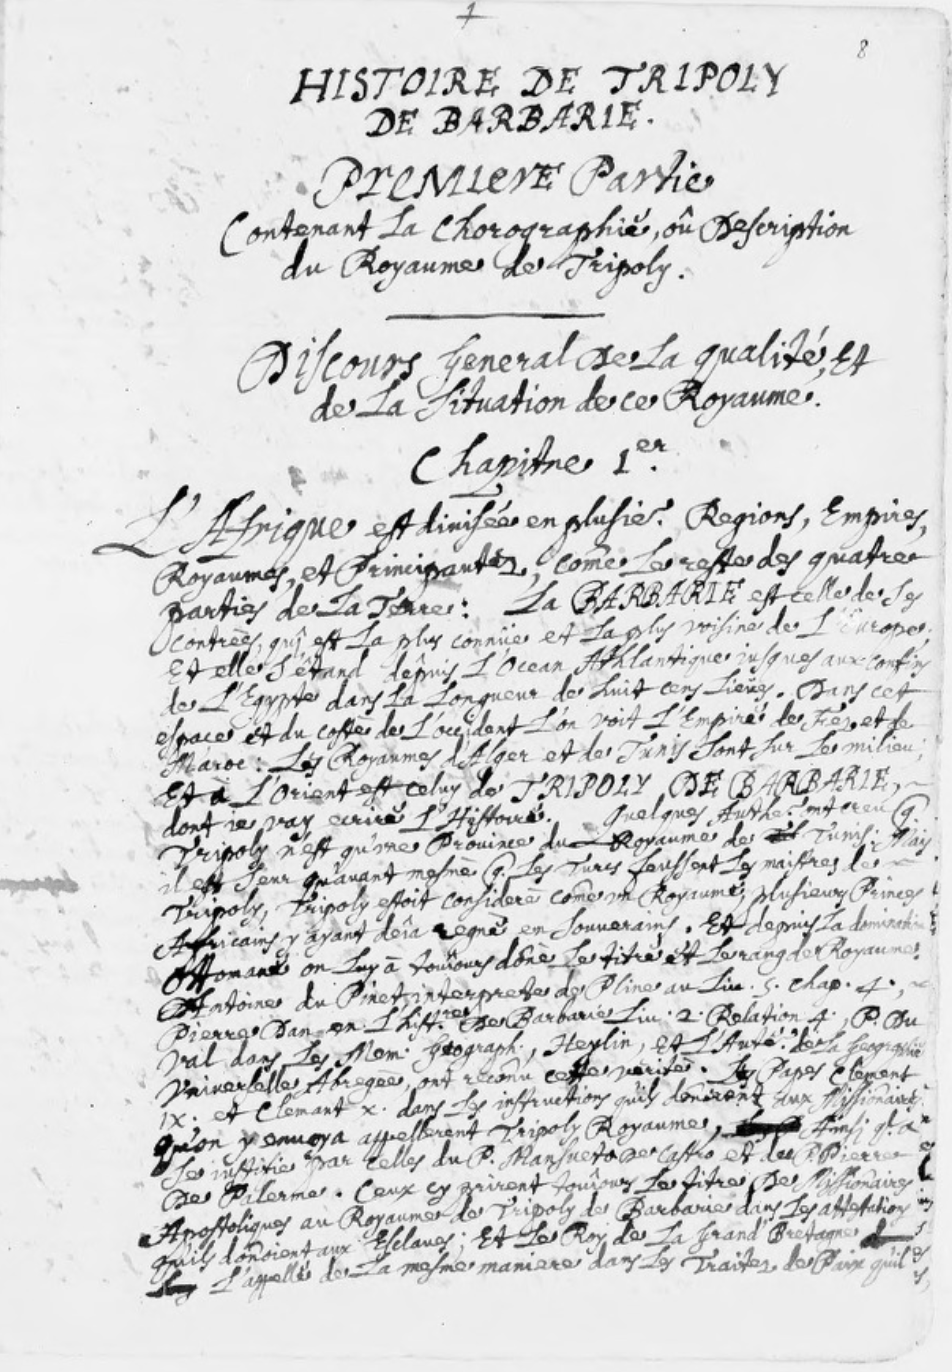 1
8
HISTOIRE DE TRIPOLY
DE BARBARIE.
PREMIERE Partie
Contenant La Chorographie, oû Description
du Royaume de Tripoly.
Discours General De La qualité, Et
de La Situation de ce Royaume.
Chapitre 1er.
L'Afrique est divisée en plusie.rs Regions, Empires,
Royaumes, et Principautéz, come Le reste des quatre
parties de La Terre: La BARBARIE est celle de Ses
Contrées, qui est La plus connüe et La plus voisine de L'Europe.
Et elle S'étand dépuis L'Ocean Athlantique iusques aux confins
de L'Egypte dans La Longueur de huit cens Lieües. Dans cet
espace et du costé de L'occident L'on voit L'Empire de Féz et de
Maroc: Les Royaumes d'Alger et de Tunis Sont Sur Le milieu;
Et à L'Orient est celuy de TRIPOLY DE BARBARIE,
dont ie vay écrire L'Histoire. Quelques Authe.rs ont creu q.
Tripoly n'est qu'une Province du Royaume de Tunis: Mais
il est Seur qu'avant mesme q. Les Turcs feussent Les maistres de
Tripoly, Tripoly estoit consideré come un Royaume, plusieurs Princes
Africains y ayant déia regné en Souverains. Et depuis La domination
Ottomane on Luy à toûiours doné Le titre et Le rang de Royaume.
Antoine du Pinet interprete de Pline au Liu. 5. chap. 4.,
Pierre Dan en L'hist.re De Barbarie Liu. 2. Relation 4., P. Du
Val dans Les Mem. Geograph., Heylin, et L'Auté.r de La Geographie
Vniverselle Abregée, ont reconu cette verité. Les Papes Clement
IX. et Clemant X. dans Les instructions qu'ils donérent aux Missionaires
qu'on y envoya appellerent Tripoly Royaume, Ainsi q.l a
Se iustifie par celles du P. Mansueto De Castro et de P. Pierre
De Palerme. Ceux cy prirent toûiours Le titre De Missionaires
Apostoliques au Royaume de Tripoly de Barbarie dans Les attestations
qu'ils donoient aux Esclaves; Et Le Roy de La Grand' Bretagne
L'appelle de La mesme maniere dans Les Traitez de Paix qu'il